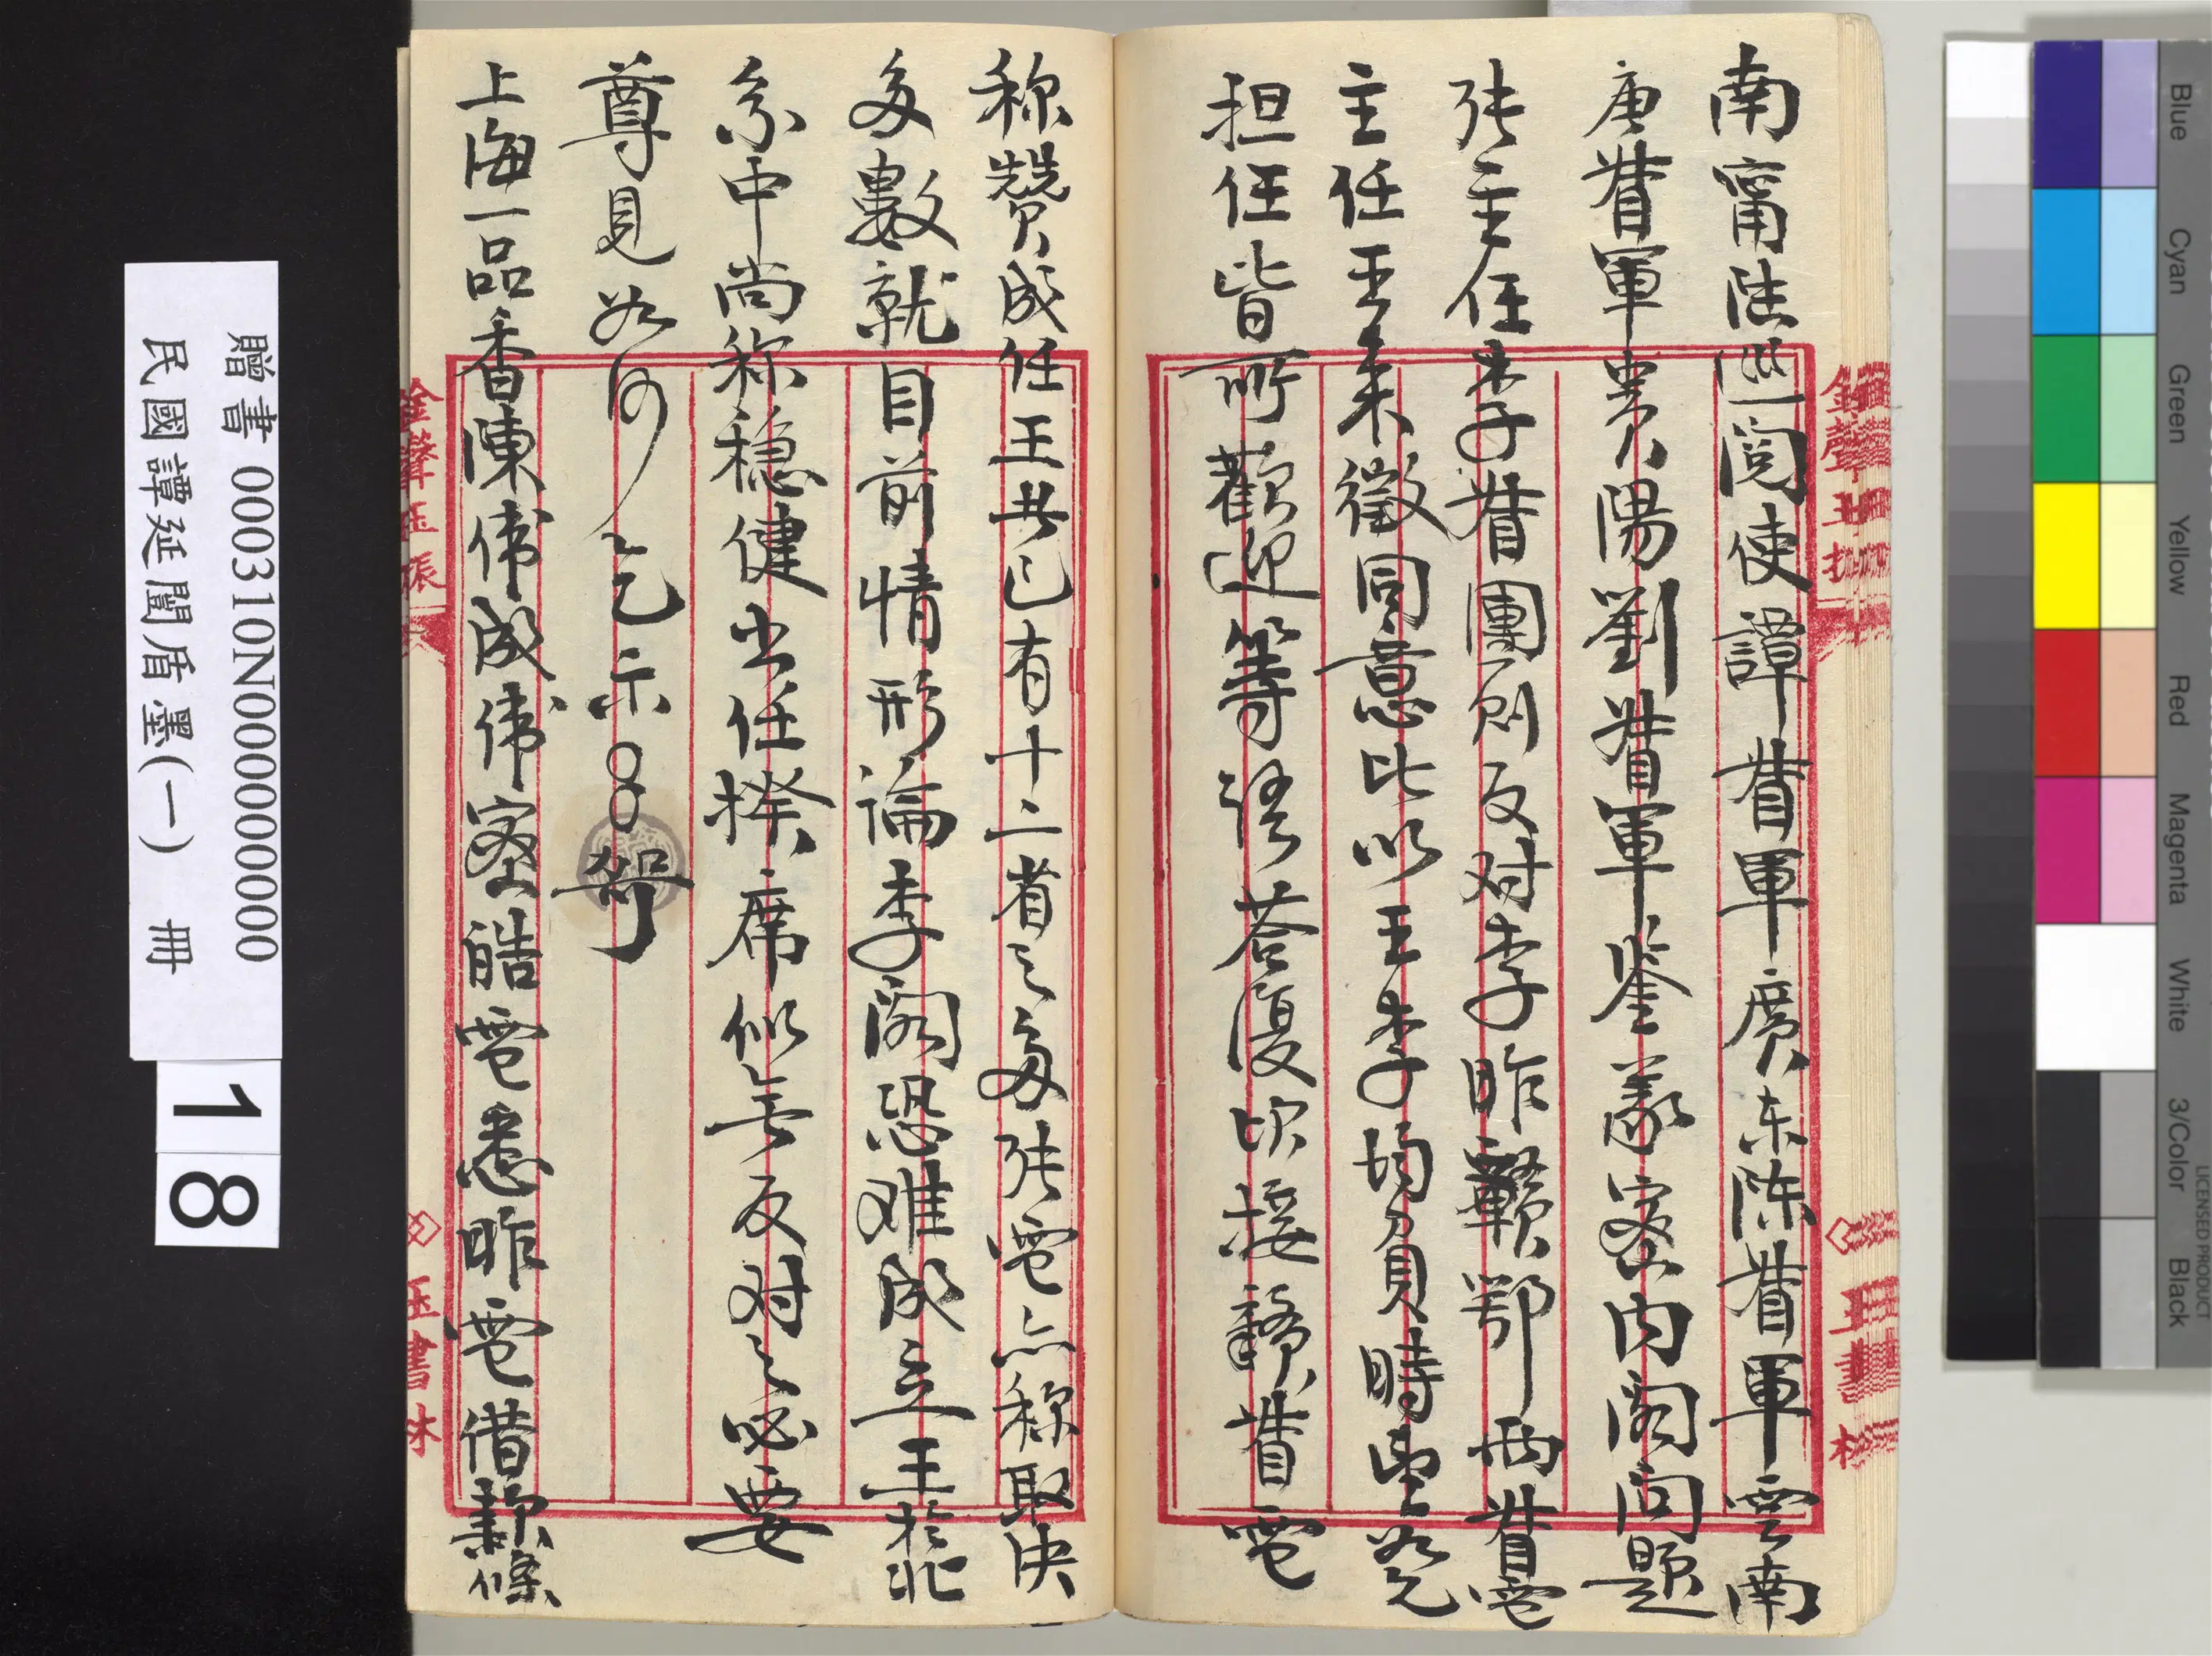 南甯陸巡閱使譚督軍廣东陈督軍雲南
唐督軍貴陽劉督軍鉴義密内阁问题
张主任李督團則反对李昨贛鄂两督電
主任王来徵同意比以王李均負時望若
担任皆所歡迎等语荅復次接贛督電
称赞成任王共已有十二省之多张電亦称取决
多數就目前情形論李阁恐难成立王於北
系中尚称稳健出任揆席似無反对之必要
尊見如何乞示
上海一品香陳偉成偉密皓電悉昨電借款條
金聲玉振
玉書林
贈書 000310N0000000000
民國譚延闓盾墨(一) 冊
18
Blue
Cyan
Green
Yellow
Red
Magenta
White
3/Color
Black
LICENSED PRODUCT